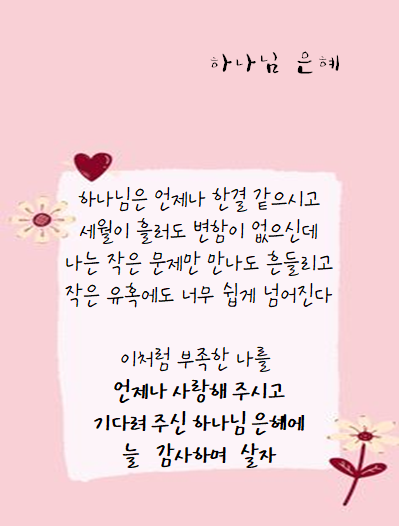 하나님 은혜
하나님은 언제나 한결 같으시고
세월이 흘러도 변함이 없으신데
나는 작은 문제만 만나도 흔들리고
작은 유혹에도 너무 쉽게 넘어진다
이처럼 부족한 나를
언제나 사랑해 주시고
기다려 주신 하나님 은혜에
늘 감사하며 살자